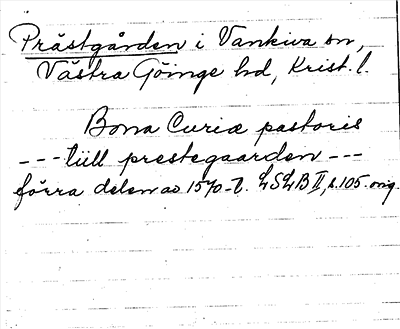 Prästgården i Vankiva sn,
Västra Göinge hd, Krist. l.
Bona Curiæ pastoris
--- till prestegaarden ---
förra delen av 1570-t. LSLB II, s. 105. orig.